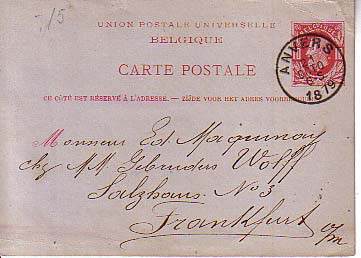 ./5
UNION POSTALE UNIVERSELLE
BELGIQUE
CARTE POSTALE
CE CÔTÉ EST RÉSERVÉ À L'ADRESSE. — ZIJDE VOOR HET ADRES VOORBEHOUDEN
ANVERS
1879
Monsieur Ed Maquinay
chez MM Gebruder Wolff
Salzhaus No 3
Frankfurt
o/m